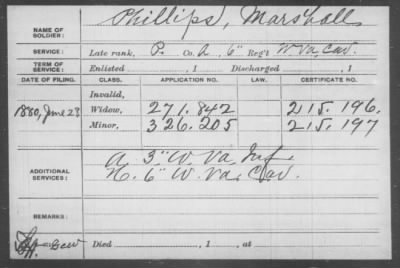 NAME OF SOLDIER: Phillips, Marshall
SERVICE: Late rank, P. Co. A, 6" Reg't W Va, Cav.
TERM OF SERVICE: Enlisted , 1 Discharged , 1
DATE OF FILING. CLASS. APPLICATION NO. LAW. CERTIFICATE NO.
Invalid,
1880, June 23 Widow, 271.842 215.196.
Minor, 326.205 215.197
ADDITIONAL SERVICES: A. 3" W. Va, Inf.
H. 6" W. Va, Cav.
REMARKS:
Died , 1 , at